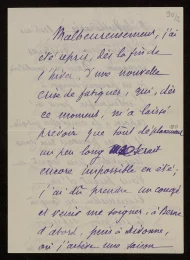 Malheureusement, j'ai
été repris, dès la fin de
l'hiver, d'une nouvelle
crise de fatigues, qui, dès
ce moment, m'a laissé
prévoir que tout déplacement
un peu long serait
encore impossible en été;
j'ai dû prendre un congé
et venir me soigner, à Berne
d'abord, puis à
où j'achève une saison